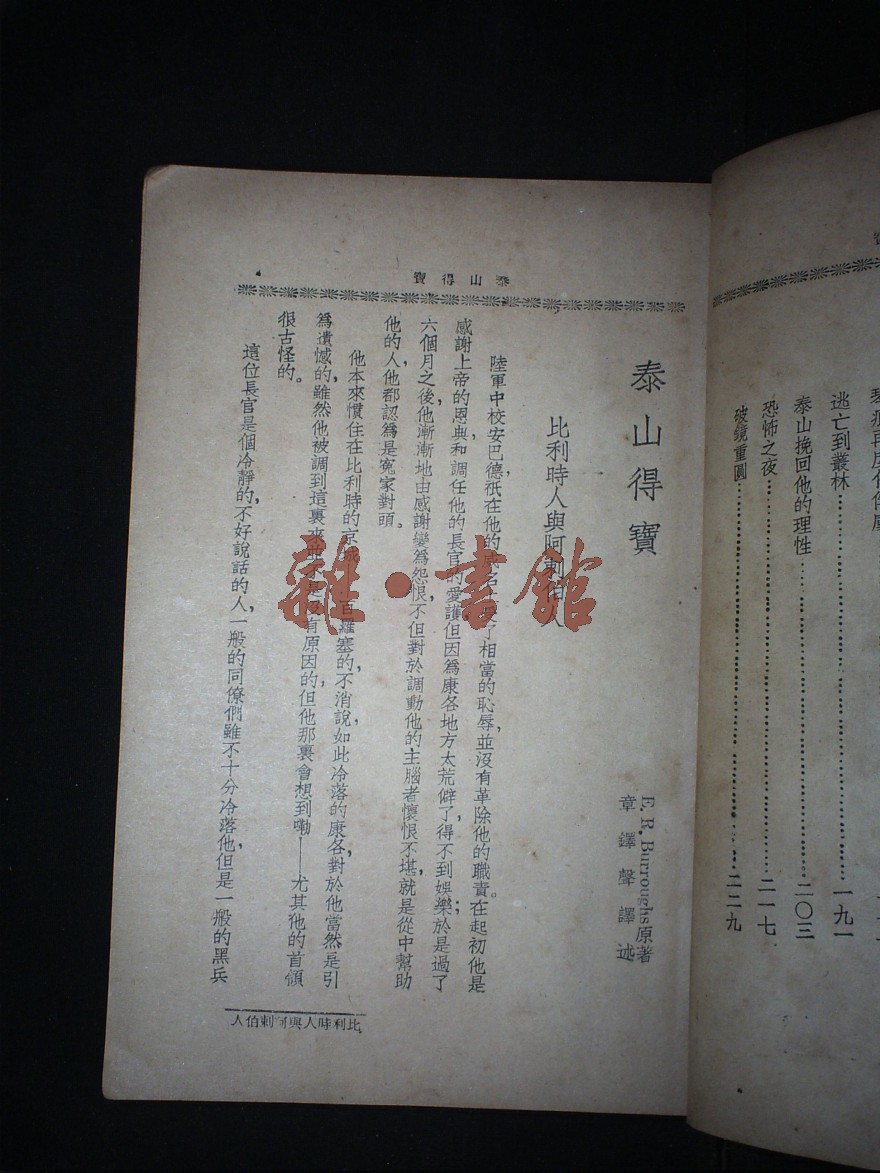 逃亡到叢林……一九一
泰山挽回他的理性……二〇三
恐怖之夜……二一七
破鏡重圓……二二九
泰山得寶
泰山得寶
E. R. Burroughs原著
章鐸聲譯述
比利時人與阿剌伯人
陸軍中校安巴德祇在他的了相當的恥辱,並沒有革除他的職責。在起初他是
感謝上帝的恩典和調任他的長官的愛護但因爲康各地方太荒僻了,得不到娛樂;於是過了
六個月之後,他漸漸地由感謝變爲怨恨,不但對於調動他的主腦者懷恨不堪,就是從中幫助
他的人,他都認爲是寃家對頭。
他本來慣住在比利時的京城百羅塞的,不消說,如此冷落的康各對於他當然是引
爲遺憾的,雖然他被調到這裏來並不是沒有原因的但他那裏會想到嘞——尤其他的首領
很古怪的。
這位長官是個冷靜的,不好說話的人,一般的同僚們雖不十分冷落他,但是一般的黑兵
比利時人與阿剌伯人
雜·書館